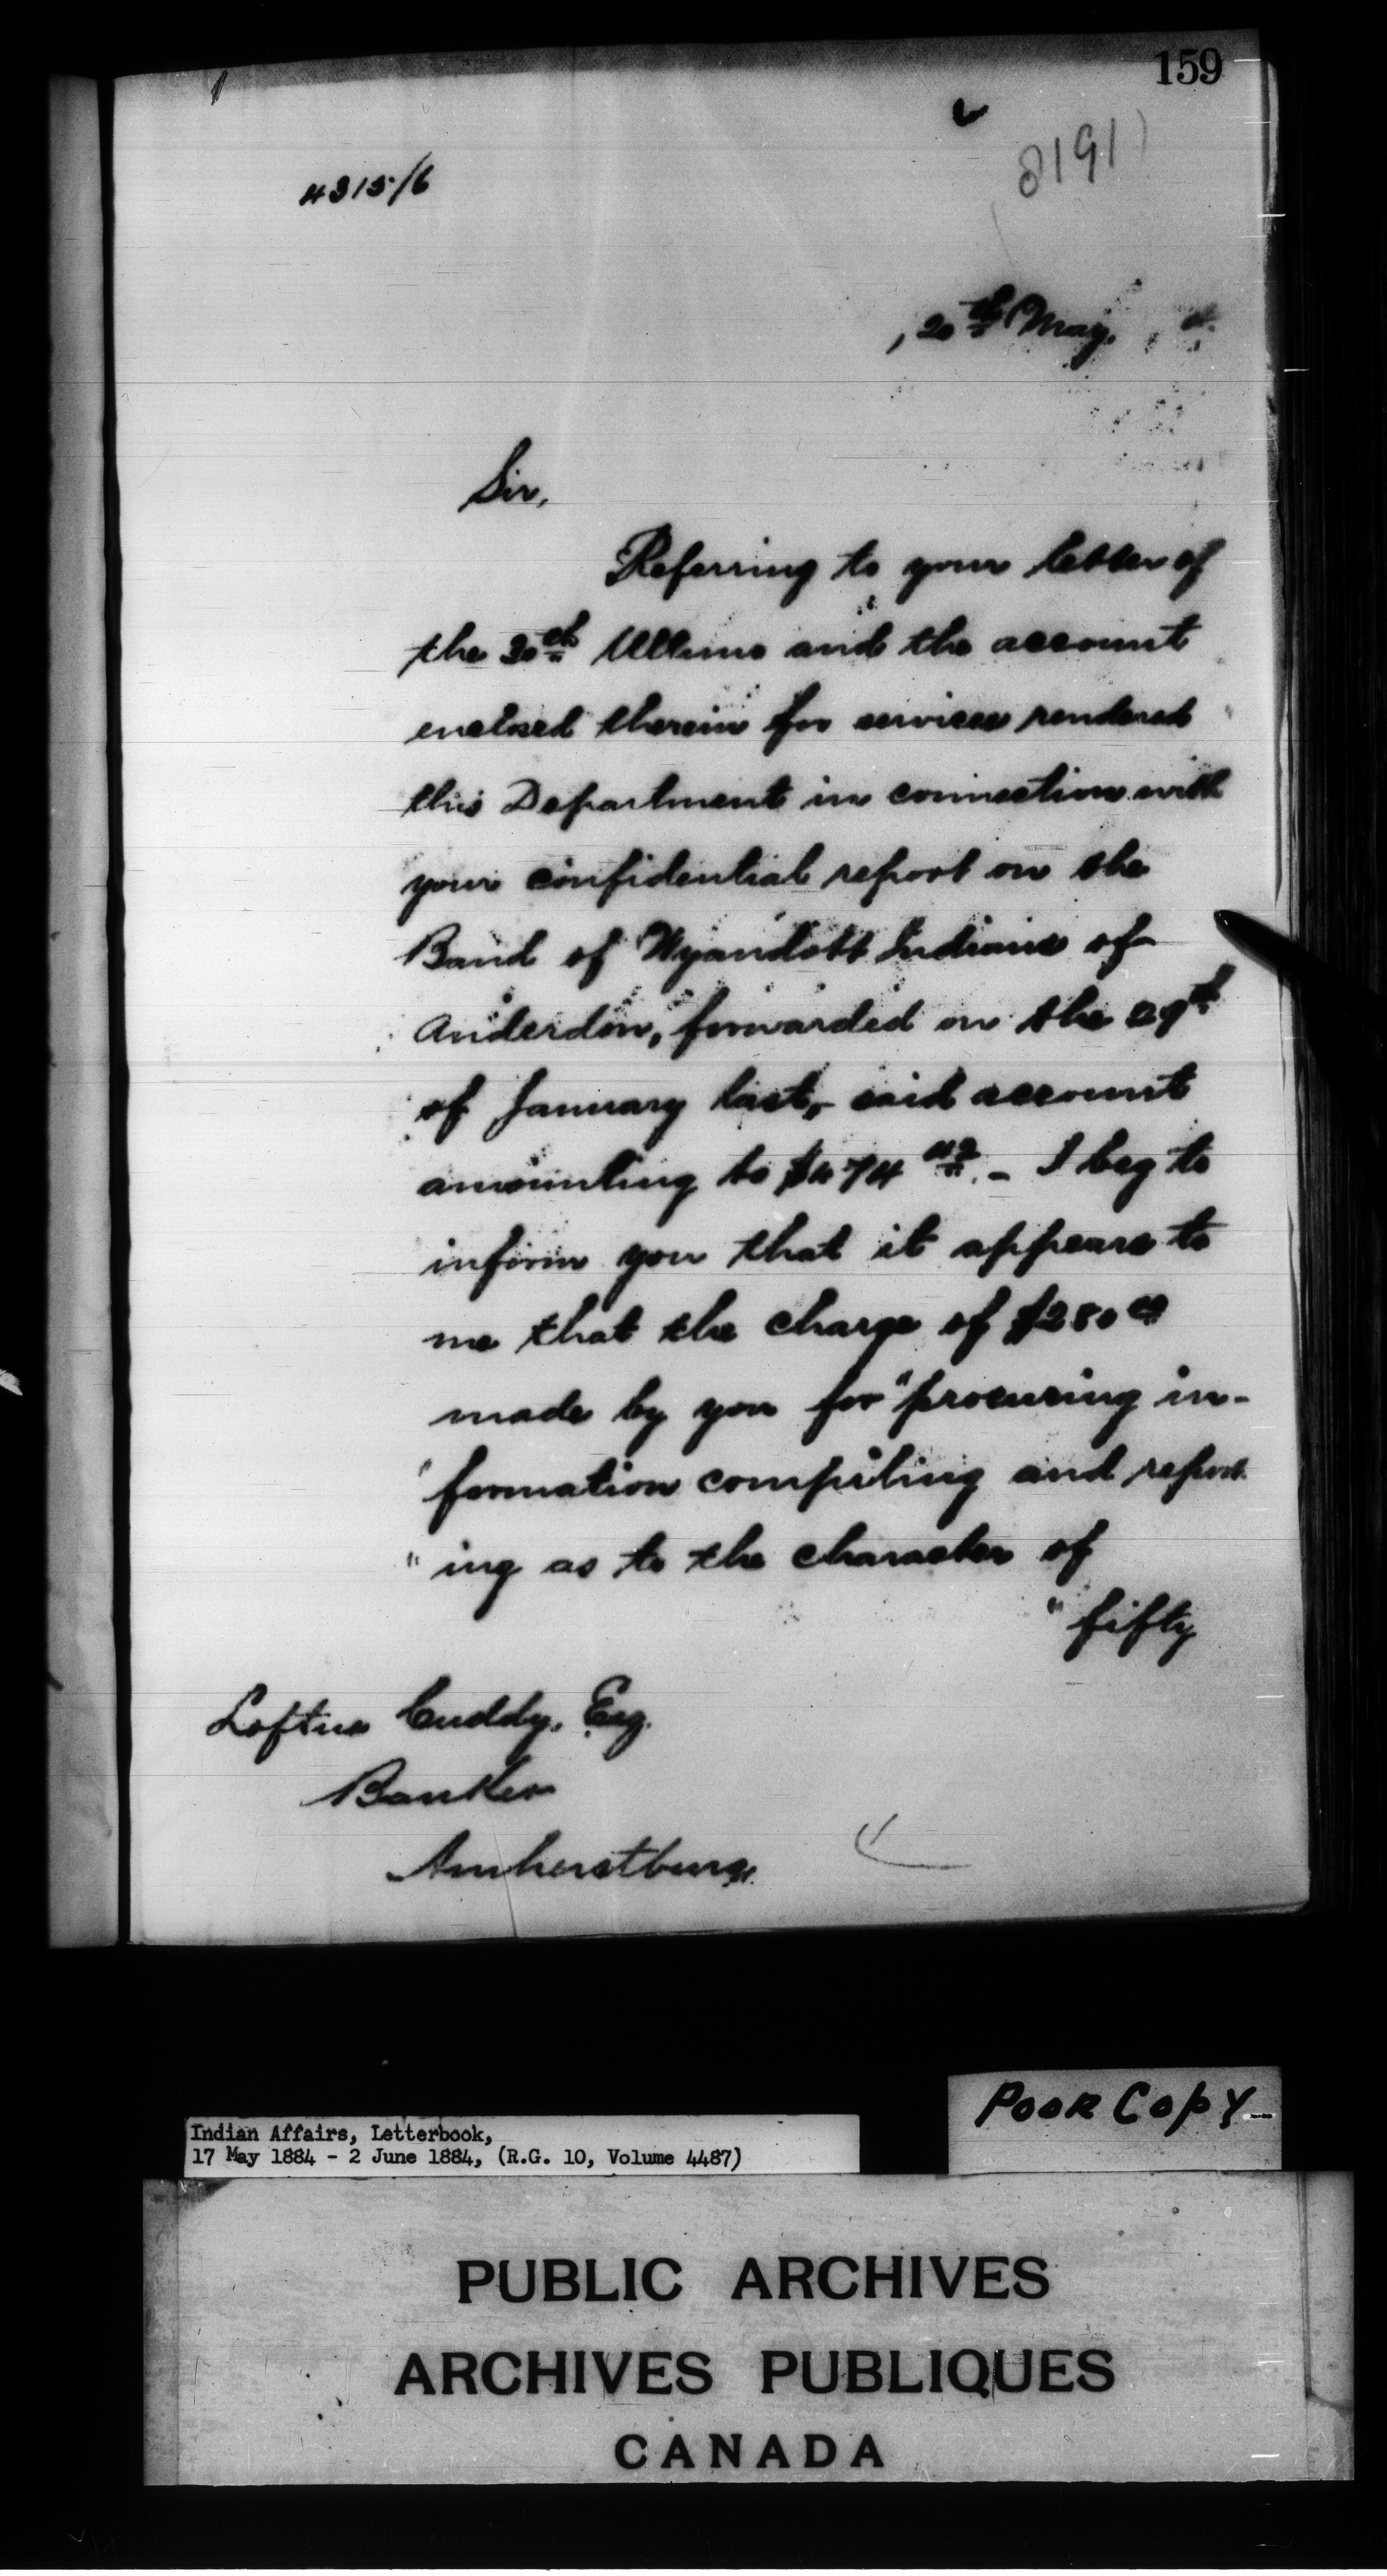 159
8191
4315/6
, 20th May, 4.
Sir,
Referring to your letter of
the 30th Ultimo and the account
enclosed therein for services rendered
this Department in connection with
your confidential report on the
Band of Wyandott Indians of
Anderdon, forwarded on the 29th
of January last, said account
amounting to $474 42. - I beg to
inform you that it appears to
me that the charge of $280 00
made by you for "procuring in-
"formation compiling and report-
"ing as to the character of
"fifty
Loftus Cuddy, Esq.
Banker
Amherstburg.
Poor Copy
Indian Affairs, Letterbook,
17 May 1884 - 2 June 1884, (R.G. 10, Volume 4487)
PUBLIC ARCHIVES
ARCHIVES PUBLIQUES
CANADA